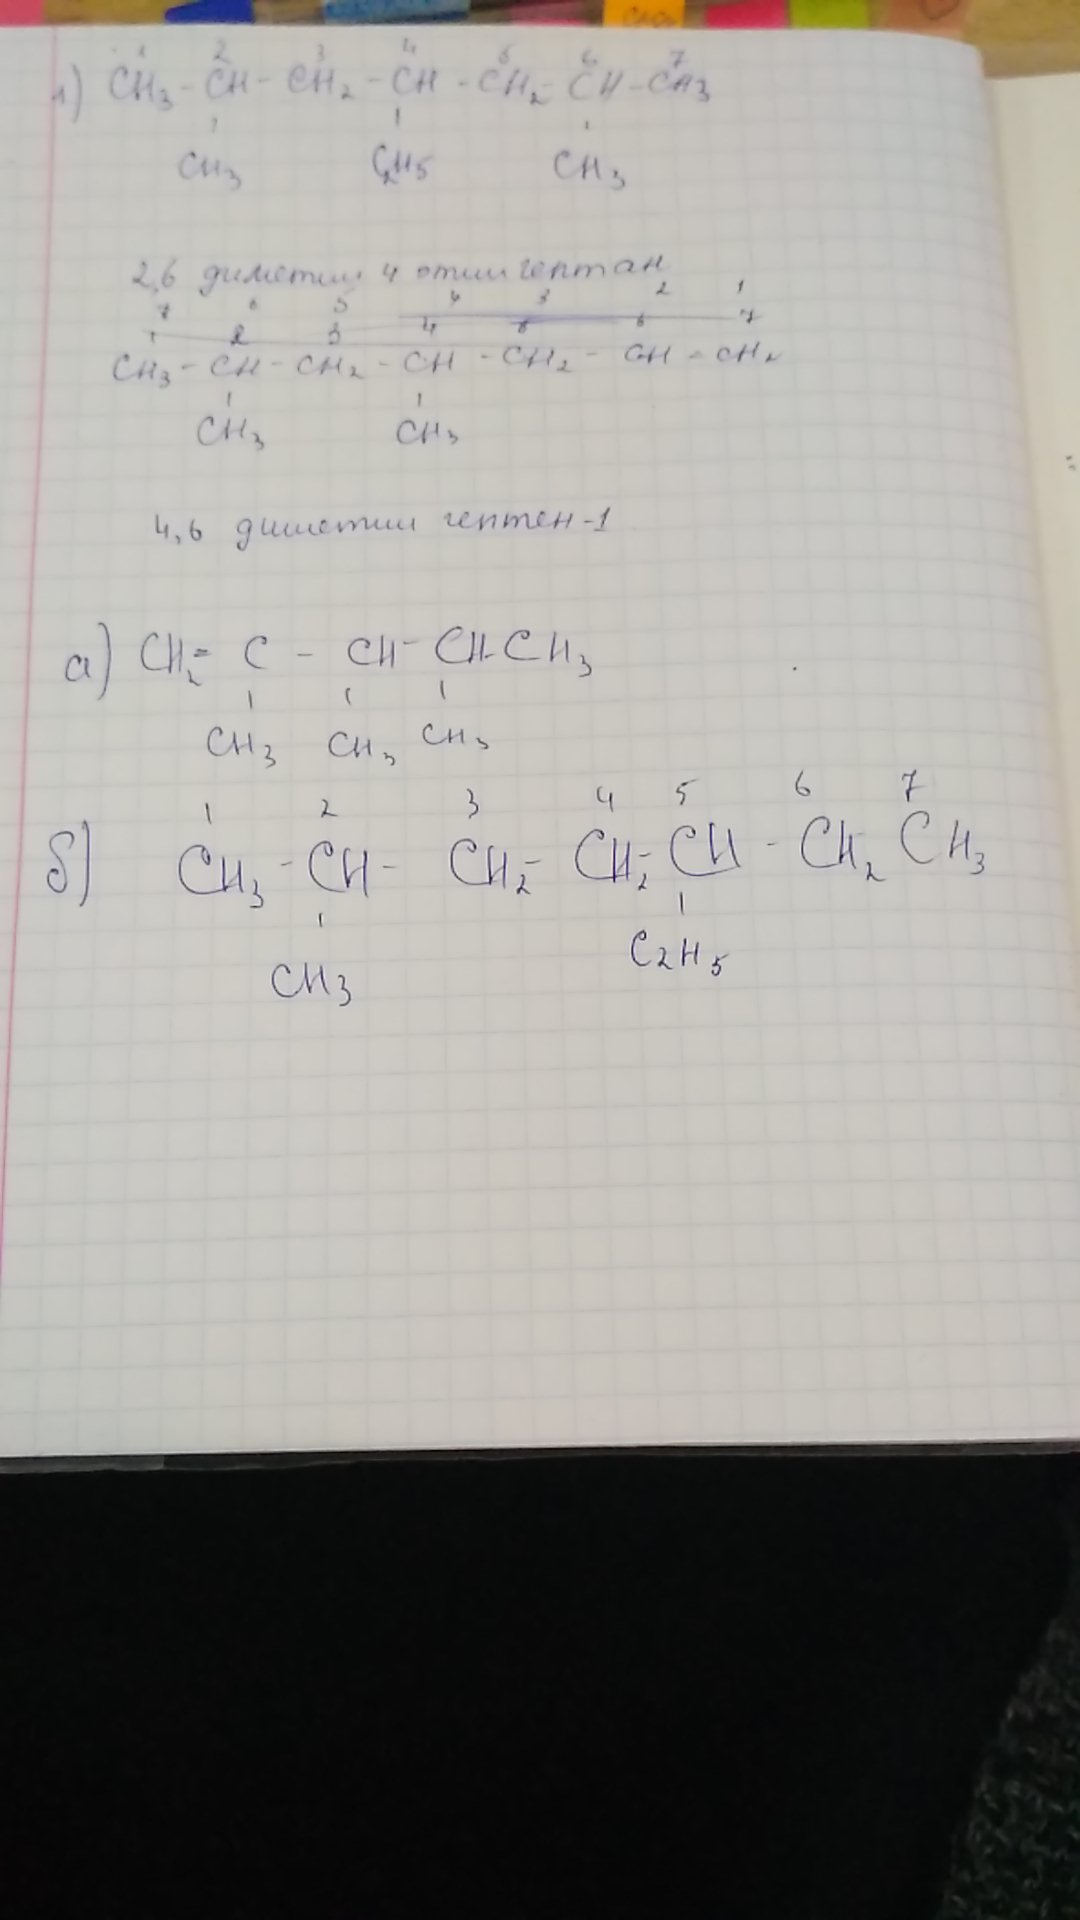 1) CH3 - CH - CH2 - CH - CH2 - CH - CH3
1 2 3 4 5 6 7
CH3 C2H5 CH3
2,6 диметил 4 этилгептан
7 6 5 4 3 2 1
1 2 3 4 5 6 7
CH3 - CH - CH2 - CH - CH2 - CH = CH2
CH3 CH3
4,6 диметил гептен-1
а) CH2 = C - CH - CH - CH3
CH3 CH3 CH3
1 2 3 4 5 6 7
б) CH3 - CH - CH2 - CH2 - CH - CH2 CH3
CH3 C2H5